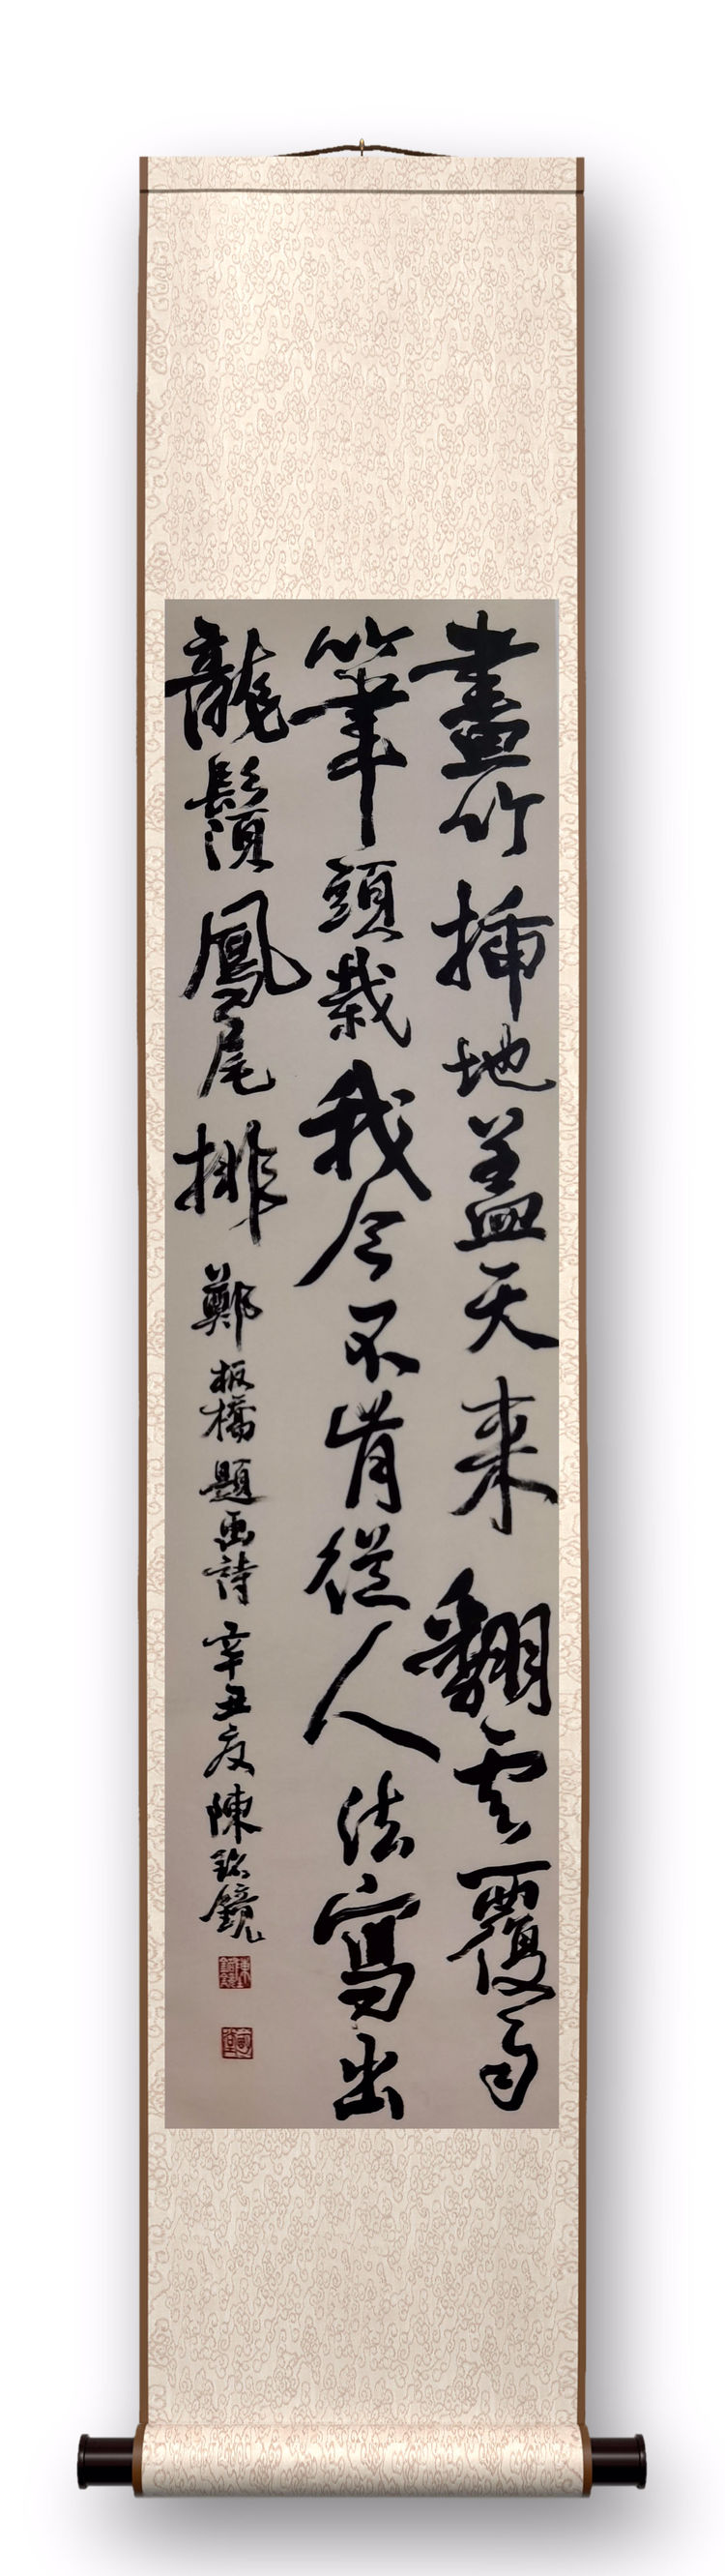 畫竹插地盖天来翻雲覆雨
筆頭栽我今不肯從人法寫出
龍鬚鳳尾排鄭板橋題画詩辛丑夏陳鏡